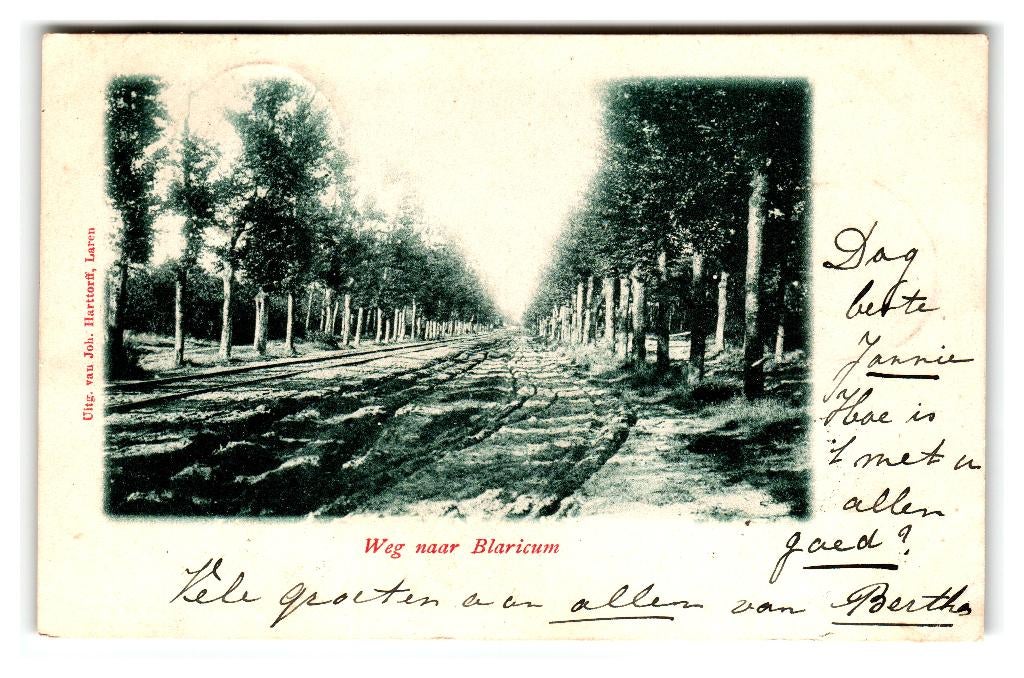 Uitg. van Joh. Harttorff, Laren
Dag
beste
Jannie
Hoe is
't met u
allen
goed?
Weg naar Blaricum
Vele groeten aan allen van Bertha